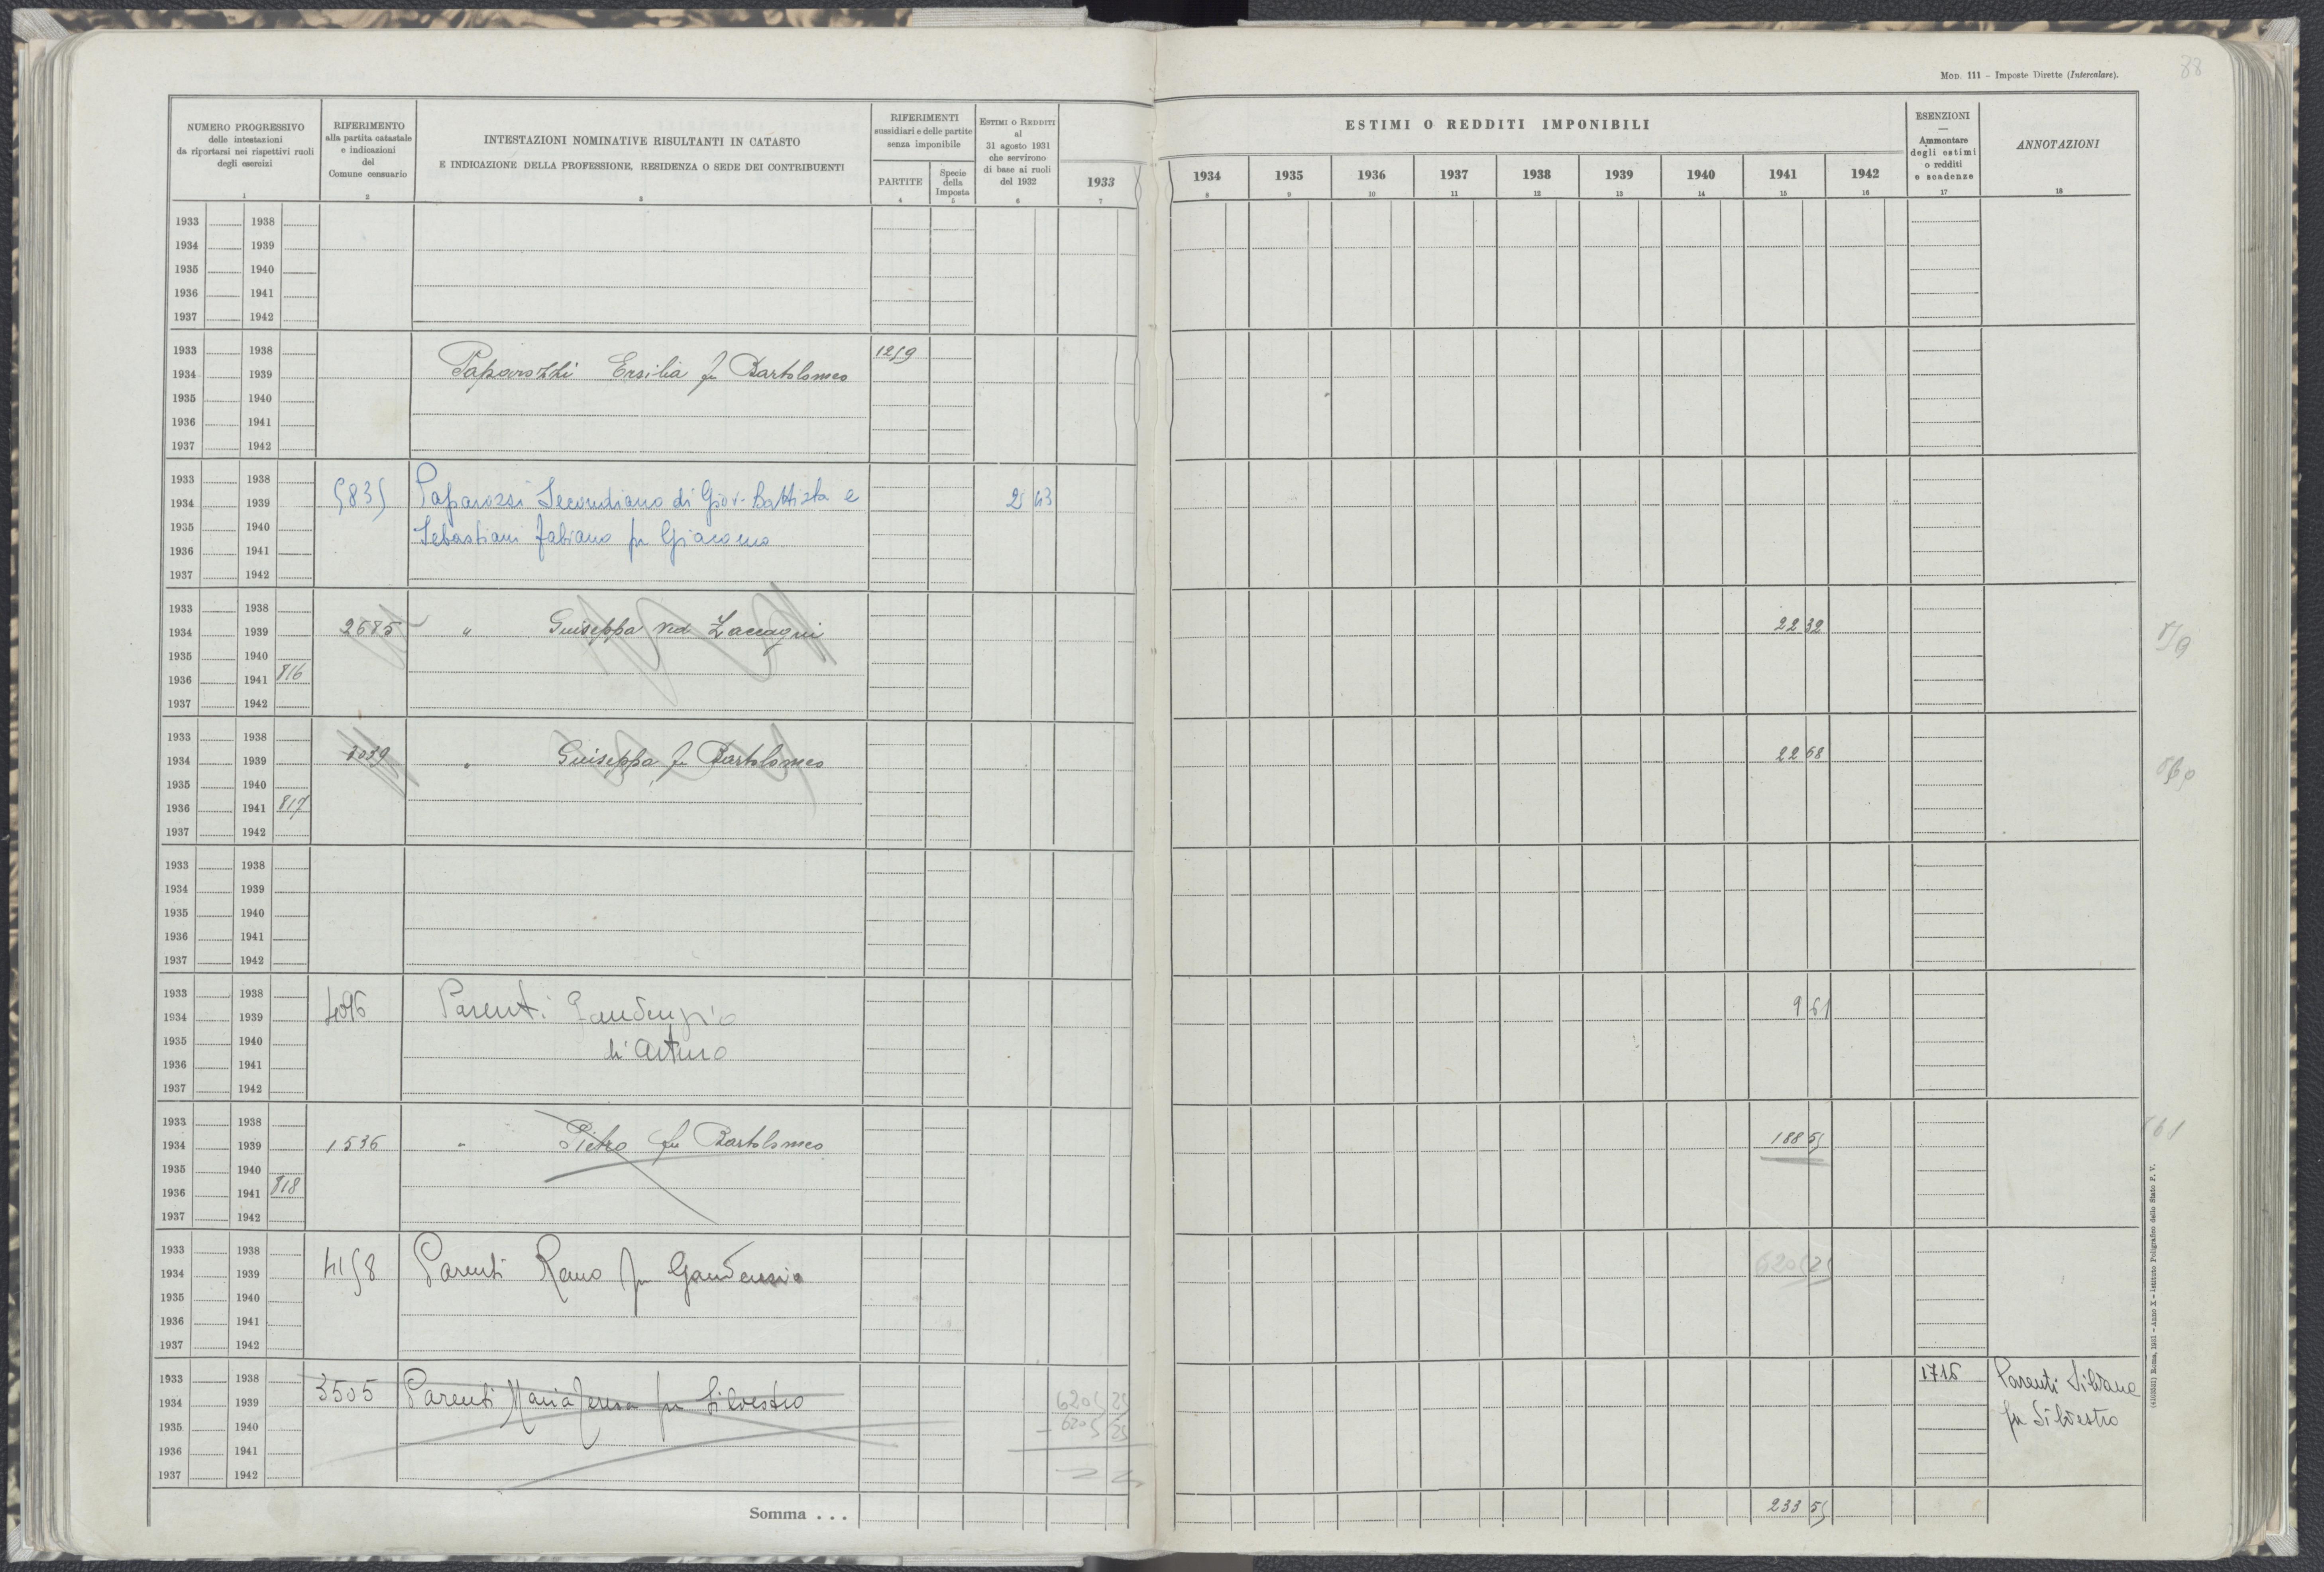 88
MOD. 111 – Imposte Dirette (Intercalare).
NUMERO PROGRESSIVO delle intestazioni da riportarsi nei rispettivi ruoli degli esercizi
RIFERIMENTO alla partita catastale e indicazioni del Comune censuario
INTESTAZIONI NOMINATIVE RISULTANTI IN CATASTO
E INDICAZIONE DELLA PROFESSIONE, RESIDENZA O SEDE DEI CONTRIBUENTI
RIFERIMENTI sussidiari e delle partite senza imponibile
PARTITE
Specie della Imposta
ESTIMI O REDDITI al 31 agosto 1931 che servirono di base ai ruoli del 1932
ESTIMI O REDDITI IMPONIBILI
1933 1934 1935 1936 1937 1938 1939 1940 1941 1942
ESENZIONI — Ammontare degli estimi o redditi e scadenze
ANNOTAZIONI
1 2 3 4 5 6 7 8 9 10 11 12 13 14 15 16 17 18
1933 1938
1934 1939
1935 1940
1936 1941
1937 1942
1933 1938
1934 1939 Paparozzi Ersilia fu Bartolomeo 1259
1935 1940
1936 1941
1937 1942
1933 1938
1934 1939 5835 Paparozzi Secondiano di Giov. Battista e 2 43
1935 1940 Sebastiani Fabiano fu Giacomo
1936 1941
1937 1942
1933 1938
1934 1939 2685 " Giuseppa ved Zaccagni 22 32
1935 1940
1936 1941 816
1937 1942
1933 1938
1934 1939 3039 " Giuseppa fu Bartolomeo 22 68
1935 1940
1936 1941 817
1937 1942
1933 1938
1934 1939
1935 1940
1936 1941
1937 1942
1933 1938
1934 1939 4096 Parenti Gaudenzio 9 61
1935 1940 di Arturo
1936 1941
1937 1942
1933 1938
1934 1939 1536 " Pietro fu Bartolomeo 188 55
1935 1940
1936 1941 818
1937 1942
1933 1938
1934 1939 4158 Parenti Remo fu Gaudenzio 6205 25
1935 1940
1936 1941
1937 1942
1933 1938 1716 Parenti Silvana
1934 1939 3505 Parenti Maria Teresa fu Silvestro 6205 25 fu Silvestro
1935 1940 – 6205 25
1936 1941
1937 1942
Somma . . . 233 55